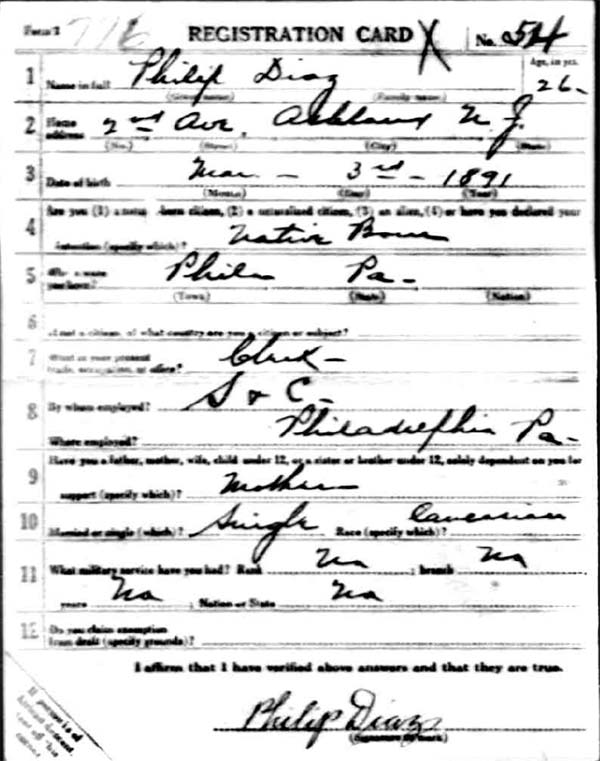 Form 1 776 REGISTRATION CARD X No. 54
1 Name in full Philip Diaz Age, in yrs. 26-
(Given name) (Family name)
2 Home address 2nd Ave, Ashland N. J.
(No.) (Street) (City) (State)
3 Date of birth Mar - 3rd - 1891
(Month) (Day) (Year)
4 Are you (1) a natural-born citizen, (2) a naturalized citizen, (3) an alien, (4) or have you declared your
intention (specify which)? Native Born
5 Where were you born? Phila Pa-
(Town) (State) (Nation)
6 If not a citizen, of what country are you a citizen or subject?
7 What is your present trade, occupation, or office? Clerk-
8 By whom employed? S & C-
Where employed? Philadelphia Pa-
9 Have you a father, mother, wife, child under 12, or a sister or brother under 12, solely dependent on you for
support (specify which)? Mother
10 Married or single (which)? Single Race (specify which)? Caucasian
11 What military service have you had? Rank No ; branch No
years No ; Nation or State No
12 Do you claim exemption
from draft (specify grounds)?
I affirm that I have verified above answers and that they are true.
Philip Diaz
(Signature or mark)
If person is of
African descent,
tear off this
corner.